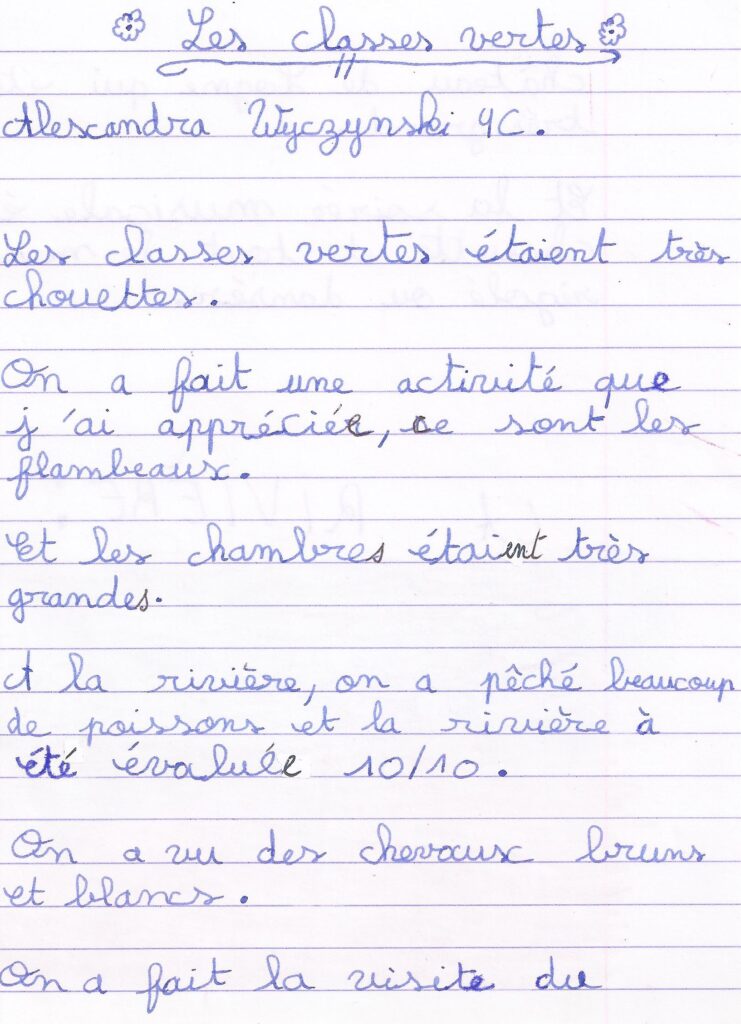 Les classes vertes
Alexcandra Wyczynski 4C.
Les classes vertes étaient très
chouettes.
On a fait une activité que
j'ai appréciée, ce sont les
flambeaux.
Et les chambres étaient très
grandes.
A la rivière, on a pêché beaucoup
de poissons et la rivière à
été évaluée 10/10.
On a vu des chevaux bruns
et blancs.
On a fait la visite du